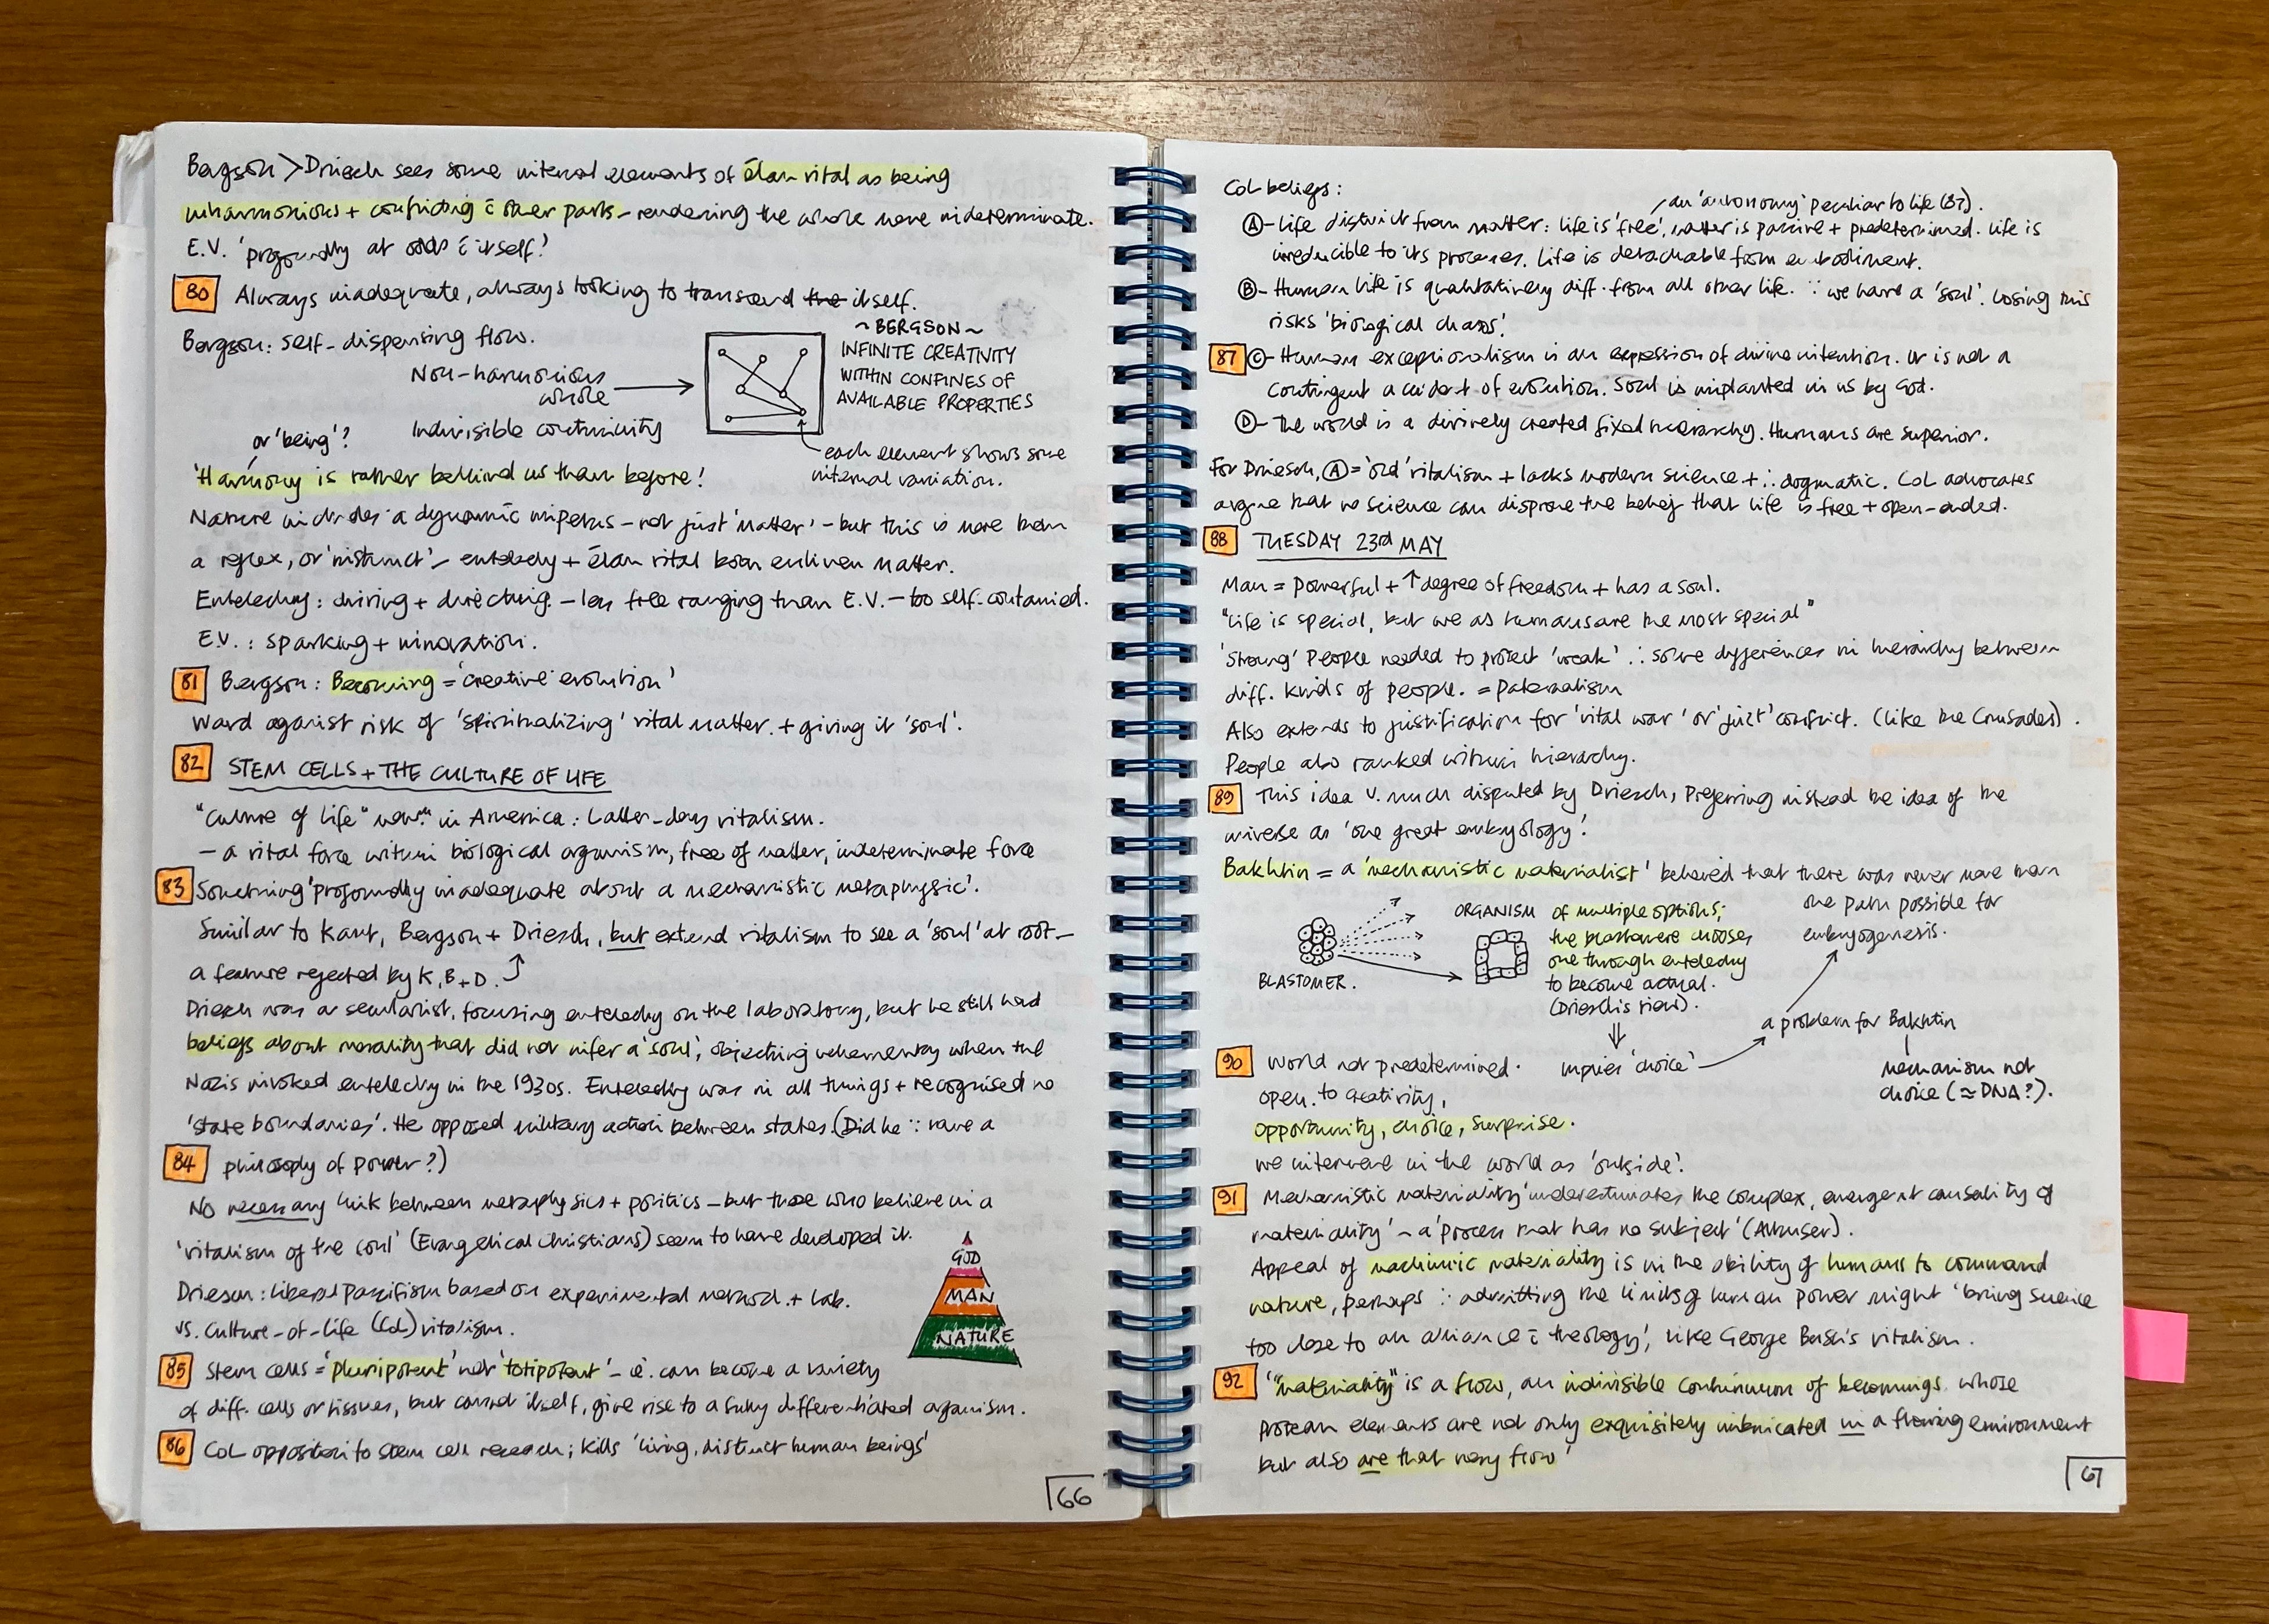 Bergson > Driesch sees some internal elements of élan vital as being
inharmonious + conflicting c̄ other parts – rendering the whole more indeterminate.
E.V. 'profoundly at odds c̄ itself'.
80 Always inadequate, always looking to transcend the itself.
Bergson: self-dispersing flow.
Non-harmonious
whole
Indivisible continuity
~ BERGSON ~
INFINITE CREATIVITY
WITHIN CONFINES OF
AVAILABLE PROPERTIES
each element shows some
internal variation.
or 'being'?
'Harmony is rather behind us than before'.
Nature includes a dynamic impetus – not just 'matter' – but this is more than
a reflex, or 'instinct' – entelechy + élan vital both enliven matter.
Entelechy: driving + directing – less free ranging than E.V. – too self-contained.
E.V.: sparking + innovation.
81 Bergson: Becoming = 'creative evolution'
Ward against risk of 'spiritualizing' vital matter + giving it 'soul'.
82 STEM CELLS + THE CULTURE OF LIFE
"Culture of life" in America: Latter-days vitalism.
– a vital force within biological organism, free of matter, indeterminate force
83 Something 'profoundly inadequate about a mechanistic metaphysic'.
Similar to Kant, Bergson + Driesch, but extend vitalism to see a 'soul' at root –
a feature rejected by K, B + D.
Driesch was a secularist, focusing entelechy on the laboratory, but he still had
beliefs about morality that did not infer a 'soul', objecting vehemently when the
Nazis invoked entelechy in the 1930s. Entelechy was in all things + recognised no
'state boundaries'. He opposed military action between states. (Did he ∵ have a
84 philosophy of power?)
No necessary link between metaphysics + politics – but those who believe in a
'vitalism of the soul' (Evangelical Christians) seem to have developed it.
Driesch: liberal pacifism based on experimental method + lab.
vs. Culture-of-life (CoL) vitalism.
GOD
MAN
NATURE
85 Stem cells = 'pluripotent' not 'totipotent' – i.e. can become a variety
of diff. cells or tissues, but cannot itself, give rise to a fully differentiated organism.
86 CoL opposition to stem cell research; kills 'living, distinct human beings'
66
CoL beliefs:
an 'autonomy' peculiar to life (87).
A – Life distinct from matter: life is 'free', matter is passive + predetermined. Life is
irreducible to its processes. Life is detachable from embodiment.
B – Human life is qualitatively diff. from all other life. ∵ we have a 'soul'. Losing this
risks 'biological chaos'.
87 C – Human exceptionalism is an expression of divine intention. It is not a
contingent accident of evolution. Soul is implanted in us by God.
D – The world is a divinely created fixed hierarchy. Humans are superior.
For Driesch, A = 'old' vitalism + lacks modern science + ∴ dogmatic. CoL advocates
argue that no science can disprove the belief that life is free + open-ended.
88 TUESDAY 23rd MAY
Man = Powerful + ↑ degree of freedom + has a soul.
"Life is special, but we as humans are the most special"
'Strong' people needed to protect 'weak' ∴ solve differences in hierarchy between
diff. kinds of people. = Paternalism
Also extends to justification for 'vital war' or 'just' conflict. (like the Crusades).
People also ranked within hierarchy.
89 This idea v. much disputed by Driesch, preferring instead the idea of the
universe as 'one great embryology'.
Bakhtin = a 'mechanistic materialist' believed that there was never more than
one path possible for
embryogenesis.
BLASTOMER.
ORGANISM
of multiple options,
the blastomere chooses
one through entelechy
to become actual.
(Driesch's view).
⇓
implies 'choice'
a problem for Bakhtin
mechanism not
choice (≈ DNA?).
90 World not predetermined.
open to creativity,
opportunity, choice, surprise.
we intervene in the world as 'outside'.
91 Mechanistic materiality 'underestimates the complex, emergent causality of
materiality' – a 'process that has no subject' (Althuser).
Appeal of machinic materiality is in the ability of humans to command
nature, perhaps ∵ admitting the limits of human power might 'bring science
too close to an alliance c̄ theology', like George Bush's vitalism.
92 '"materiality" is a flow, an indivisible continuum of becomings whose
protean elements are not only exquisitely imbricated in a flowing environment
but also are that very flow'
67